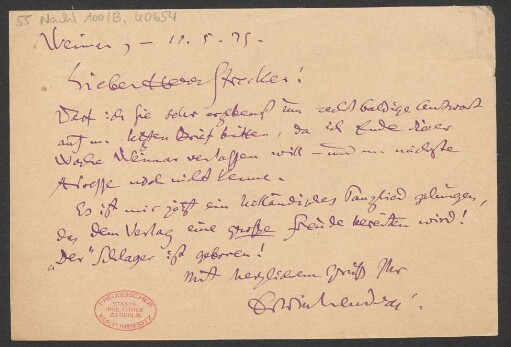 55 Nachl 100/B, 40654
Weimar, – 11.5.25.
Lieber Herr Strecker!
Darf ich Sie sehr ergebenst um recht baldige Antwort
auf m. letzten Brief bitten, da ich Ende dieser
Woche Weimar verlassen will – und m. nächste
Adresse noch nicht kenne.
Es ist mir jetzt ein Tanzlied gelungen,
das dem Verlag eine große Freude bereiten wird!
„Der" Schlager ist geboren!
Mit herzlichem Gruß Ihr
PREUSSISCHER
STAATS-
BIBLIOTHEK
ZU BERLIN
KULTURBESITZ